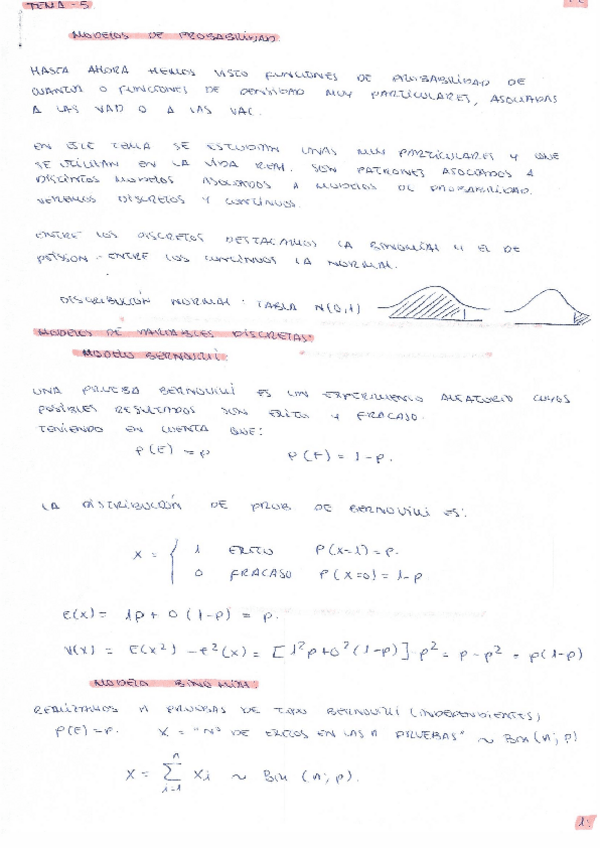 TEMA-5
MODELOS DE PROBABILIDAD
HASTA AHORA HEMOS VISTO FUNCIONES DE PROBABILIDAD DE
CUANTIAS O FUNCIONES DE DENSIDAD MUY PARTICULARES, ASOCIADAS
A LAS VAD O A LAS VAC.
EN ESTE TEMA SE ESTUDIAN UNAS MUY PARTICULARES Y QUE
SE UTILIZAN EN LA VIDA REAL. SON PATRONES ASOCIADOS A
DISTINTOS MODELOS ASOCIADOS A MODELOS DE PROBABILIDAD.
VEREMOS DISCRETOS Y CONTINUOS.
ENTRE LOS DISCRETOS DESTACAMOS LA BINOMIAL Y EL DE
POISSON. ENTRE LOS CONTINUOS LA NORMAL.
DISTRIBUCIÓN NORMAL: TABLA N(0,1)
MODELOS DE VARIABLES DISCRETAS
MODELO BERNOUILLI
UNA PRUEBA BERNOUILLI ES UN EXPERIMENTO ALEATORIO CUYOS
POSIBLES RESULTADOS SON EXITO Y FRACASO.
TENIENDO EN CUENTA QUE:
P(E) = p P(F) = 1-p.
LA DISTRIBUCIÓN DE PROB DE BERNOUILLI ES:
X = { 1 EXITO P(X=1)=p.
0 FRACASO P(X=0)=1-p
E(x)= 1p+0(1-p) = p.
V(x) = E(x²) - E²(x) = [1²p+0²(1-p)]-p² = p-p² = p(1-p)
MODELO BINOMIAL:
REALIZAMOS n PRUEBAS DE TIPO BERNOUILLI (INDEPENDIENTES)
P(E)=p. X = "Nº DE EXITOS EN LAS n PRUEBAS" ~ Bin (n; p)
X = ∑ⁿᵢ₌₁ Xi ~ Bin (n; p).
1.